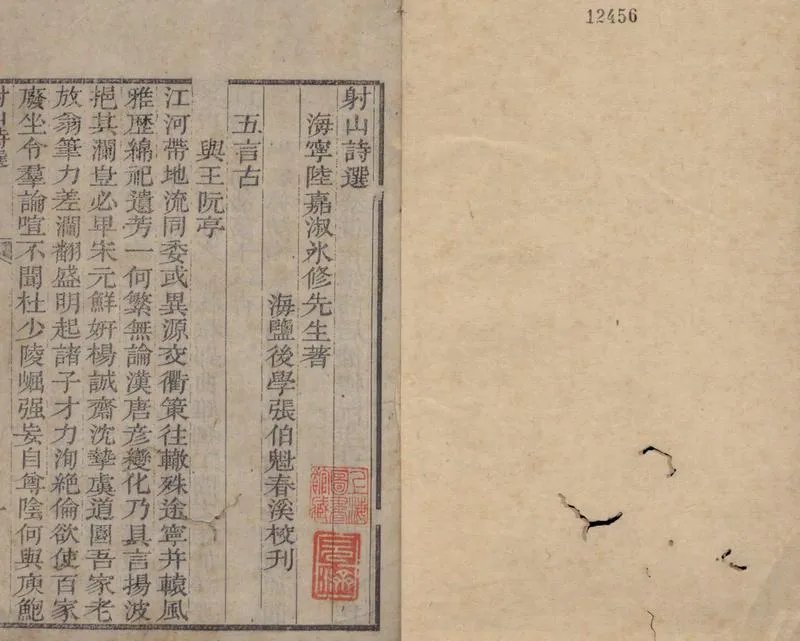 12456
射山詩選
海寧陸嘉淑氷修先生著
海鹽後學張伯魁春溪校刊
五言古
與王阮亭
江河帶地流同委或異源交衢策往轍殊途寧并轅風
雅歷綿祀遺芳一何繁無論漢唐彥變化乃具言揚波
挹其瀾豈必卑宋元鮮妍楊誠齋沈摯虞道園吾家老
放翁筆力差瀾翻盛明起諸子才力洵絕倫欲使百家
廢坐令羣論喧不聞杜少陵崛强妄自尊陰何與庾鮑
射山詩選
上海圖書館藏